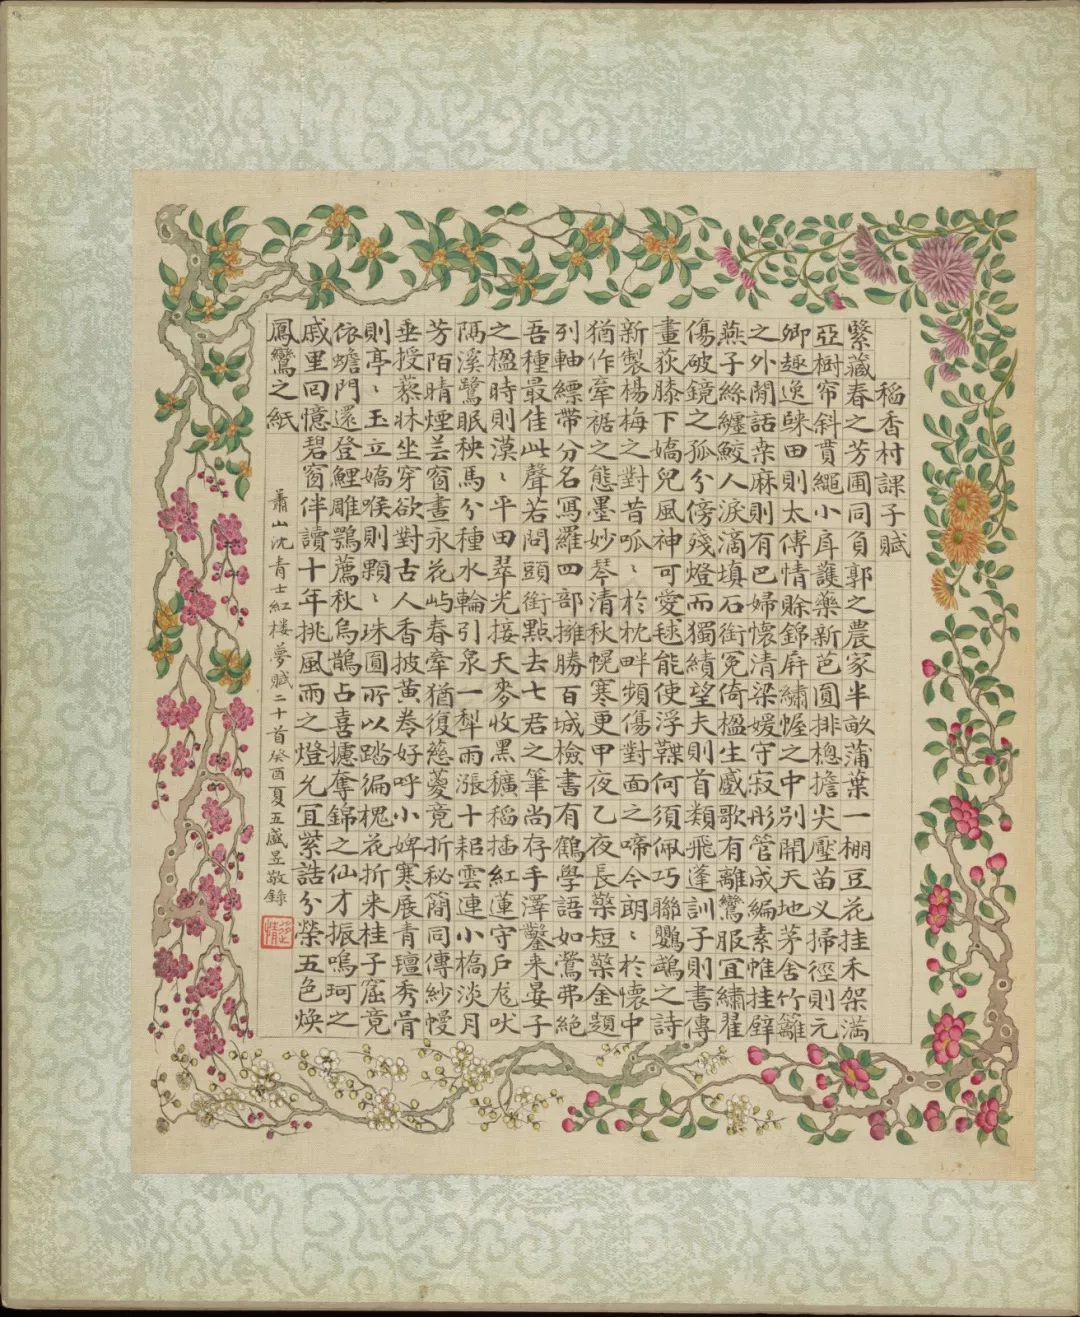 稻香村課子賦
繄藏春之芳圃同負郭之農家半畝蒲葉一棚豆花挂禾架滿
亞樹帘斜貫繩小戽護藥新芭圓排樬擔尖壓苗义掃徑則元
卿趣逸踈田則太傅情賒錦屏繡幄之中別開天地茅舍竹籬
之外閒話桒麻則有巴婦懷清梁媛守寂彤管成編素帷挂壁
燕子絲纏鮫人淚滴填石銜冤倚楹生慼歌有離鸞服宜繡翟
傷破鏡之孤分傍殘燈而獨績望夫則首類飛蓬訓子則書傳
畫荻膝下嬌兒風神可愛毬能使浮鞢何須佩巧聯鸚鵡之詩
新製楊梅之對昔呱〻於枕畔頻傷對面之啼今朗〻於懷中
猶作牽裾之態墨妙琴清秋幌寒更甲夜乙夜長檠短檠金題
列軸縹帶分名寫羅四部擁勝百城檢書有鶴學語如鶯弗絕
吾種最佳此聲若問頭銜點去七君之筆尚存手澤鑿来晏子
之楹時則漠〻平田翠光接天麥收黑穬稻插紅蓮守戶尨吠
隔溪鷺眠秧馬分種水輪引泉一犁雨漲十耜雲連小橋淡月
芳陌晴煙芸窗書永花嶼春牽猶復慈蘐竟折秘簡同傳紗幔
垂授蔡牀坐穿欲對古人香披黃卷好呼小婢寒展青瓊秀骨
則亭〻玉立嬌喉則顆〻珠圓所以踏徧槐花折来桂子窟竟
依蟾門還登鯉雕鶚薦秋烏鵲占喜攄奪錦之仙才振鳴珂之
戚里回憶碧窗伴讀十年挑風雨之燈允宜紫誥分榮五色煥
鳳鸞之紙
蕭山沈青士紅樓夢賦二十首癸酉夏五盛昱敬錄